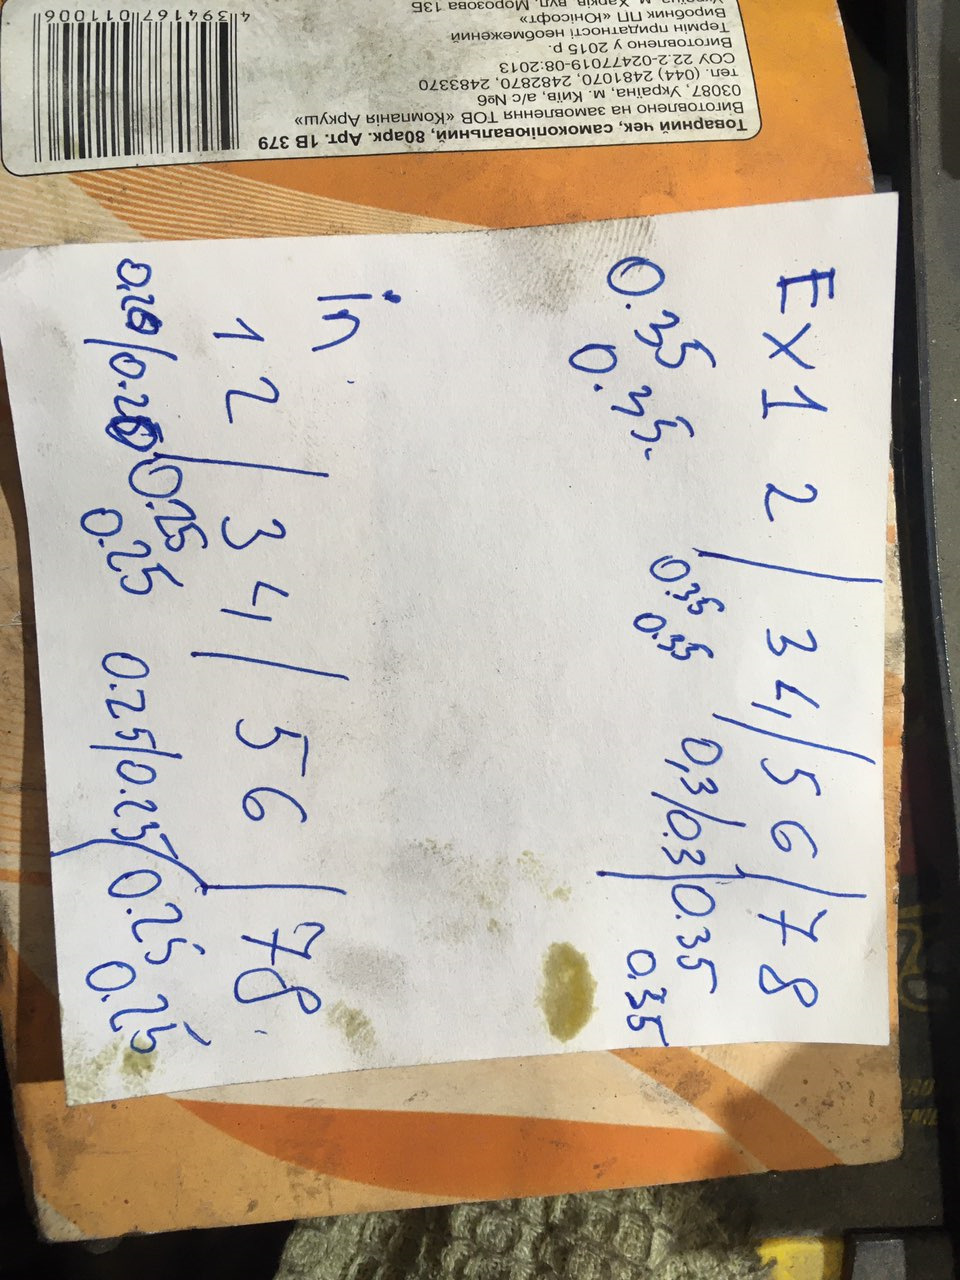 Ex 1 2 / 3 4 / 5 6 / 7 8
0.35 0.35 0,3/0.3/0.35
0.35 0.35 0.35
in.
1 2 / 3 4 / 5 6 / 7 8.
0.25 0.25
0.25 0.25/0.25/ 0.25
Товарний чек, самокопіювальний, 80арк. Арт. 1В 379
Виготовлено на замовлення ТОВ «Компанія Аркуш»
03087, Україна, м. Київ, а/с №6
тел. (044) 2481070, 2482870, 2483370
СОУ 22.2-02477019-08:2013
Виготовлено у 2015 р.
Термін придатності необмежений
Виробник ПП «Юнісофт»
Україна, м. Харків, вул. Морозова 13Б
4394167011006